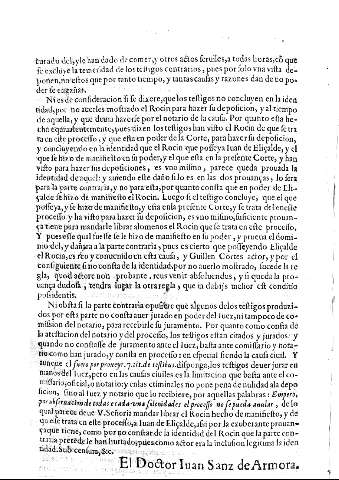 curado del, y le han dado de comer, y otros actos seruiles, a todas horas, cõ que
se excluye la temeridad de los testigos contrarios, pues por solo vna vista de-
ponen, no estos que por tanto tiempo, y tantas causas y razones dan de no po-
der se engañar.
Ni es de consideracion si se dixere, que los testigos no concluyen en la iden
tidad, por no auerles mostrado el Rocin para hazer su deposicion, y al tiempo
de aquella, y que deuia hazerse por el notario de la causa. Por quanto esta he-
cho equiualentemente, pues dizen los testigos han visto el Rocin de que se tra
ta en este processo, y que esta en poder de la Corte, para hazer su deposicion,
y concluyendo en la identidad que el Rocin que posseya Iuan de Eliçalde, y el
que se hizo de manifiesto en su poder, y el que esta en la presente Corte, y han
visto para hazer sus deposiciones, es vno mismo, parece queda prouada la
identidad de aquel: y siendo elle daño si lo es en las dos prouanças, lo sera
para la parte contraria, y no para esta, por quanto consta que en poder de Eli-
çalde se hizo de manifiesto el Rocin. Luego si el testigo concluye, que el que
posseya, y se hizo de manifiesto, y esta en la presente Corte, y se trata de len este
processo y ha visto para hazer su deposicion, es vno mismo, suficiente prouan-
ça tiene para mandarle librar al omenos el Rocin que se trata en este processo.
Y pues este qual fuesse le se hizo de manifiesto en su poder, y prueua el domi-
nio del, y dañara a la parte contraria, pues es cierto que posseyendo Eliçalde
el Rocin, es reo y conuenido en esta causa, y Guillen Cortes actor, y por el
consiguiente si no consta de la identidad por no auerlo mostrado, sucede la re
gla, quod actore non probante, reus venit absoluendus, y si queda la pro-
uança dudosa, tendra lugar la otra regla, que in dubijs melior est conditio
possidentis.
Ni obsta si la parte contraria opusiere que algunos de los testigos produzi-
dos por esta parte no consta auer jurado en poder del Iuez, ni tampoco de co-
mission del notario, para recebirle su juramento. Por quanto como consta de
la attestacion del notario y del processo, los testigos estan citados y jurados: y
quando no constasse de juramento ante el Iuez, basta ante comissario y nota-
rio como han jurado, y consta en processo: en especial siendo la causa ciuil. Y
aunque el fuero por procegir 7. titulo testibus, disponga, los testigos deuer jurar en
manos del Iuez, pero en las causas ciuiles es la limitacion que basta ante el co-
missario, oficial, o notario: y en las criminales no pone pena de nulidad a la depo
sicion, sino al Iuez y notario que lo recibiere, por aquellas palabras: Empero,
por afirmacion de todas e cada vna solenidades el processo no se pueda anular, de lo
qual parece deue V. Señoria mandar librar el Rocin hecho de manifiesto, y de
que se trata en este processo, a Iuan de Eliçalde, assi por la exuberante prouan-
ça que tiene, como por no constar de la identidad del Rocin que la parte con-
traria pretende le han hurtado, pues como actor era la inclusion legitima la iden
tidad. Sub censura, &c.
El Doctor Iuan Sanz de Armora.